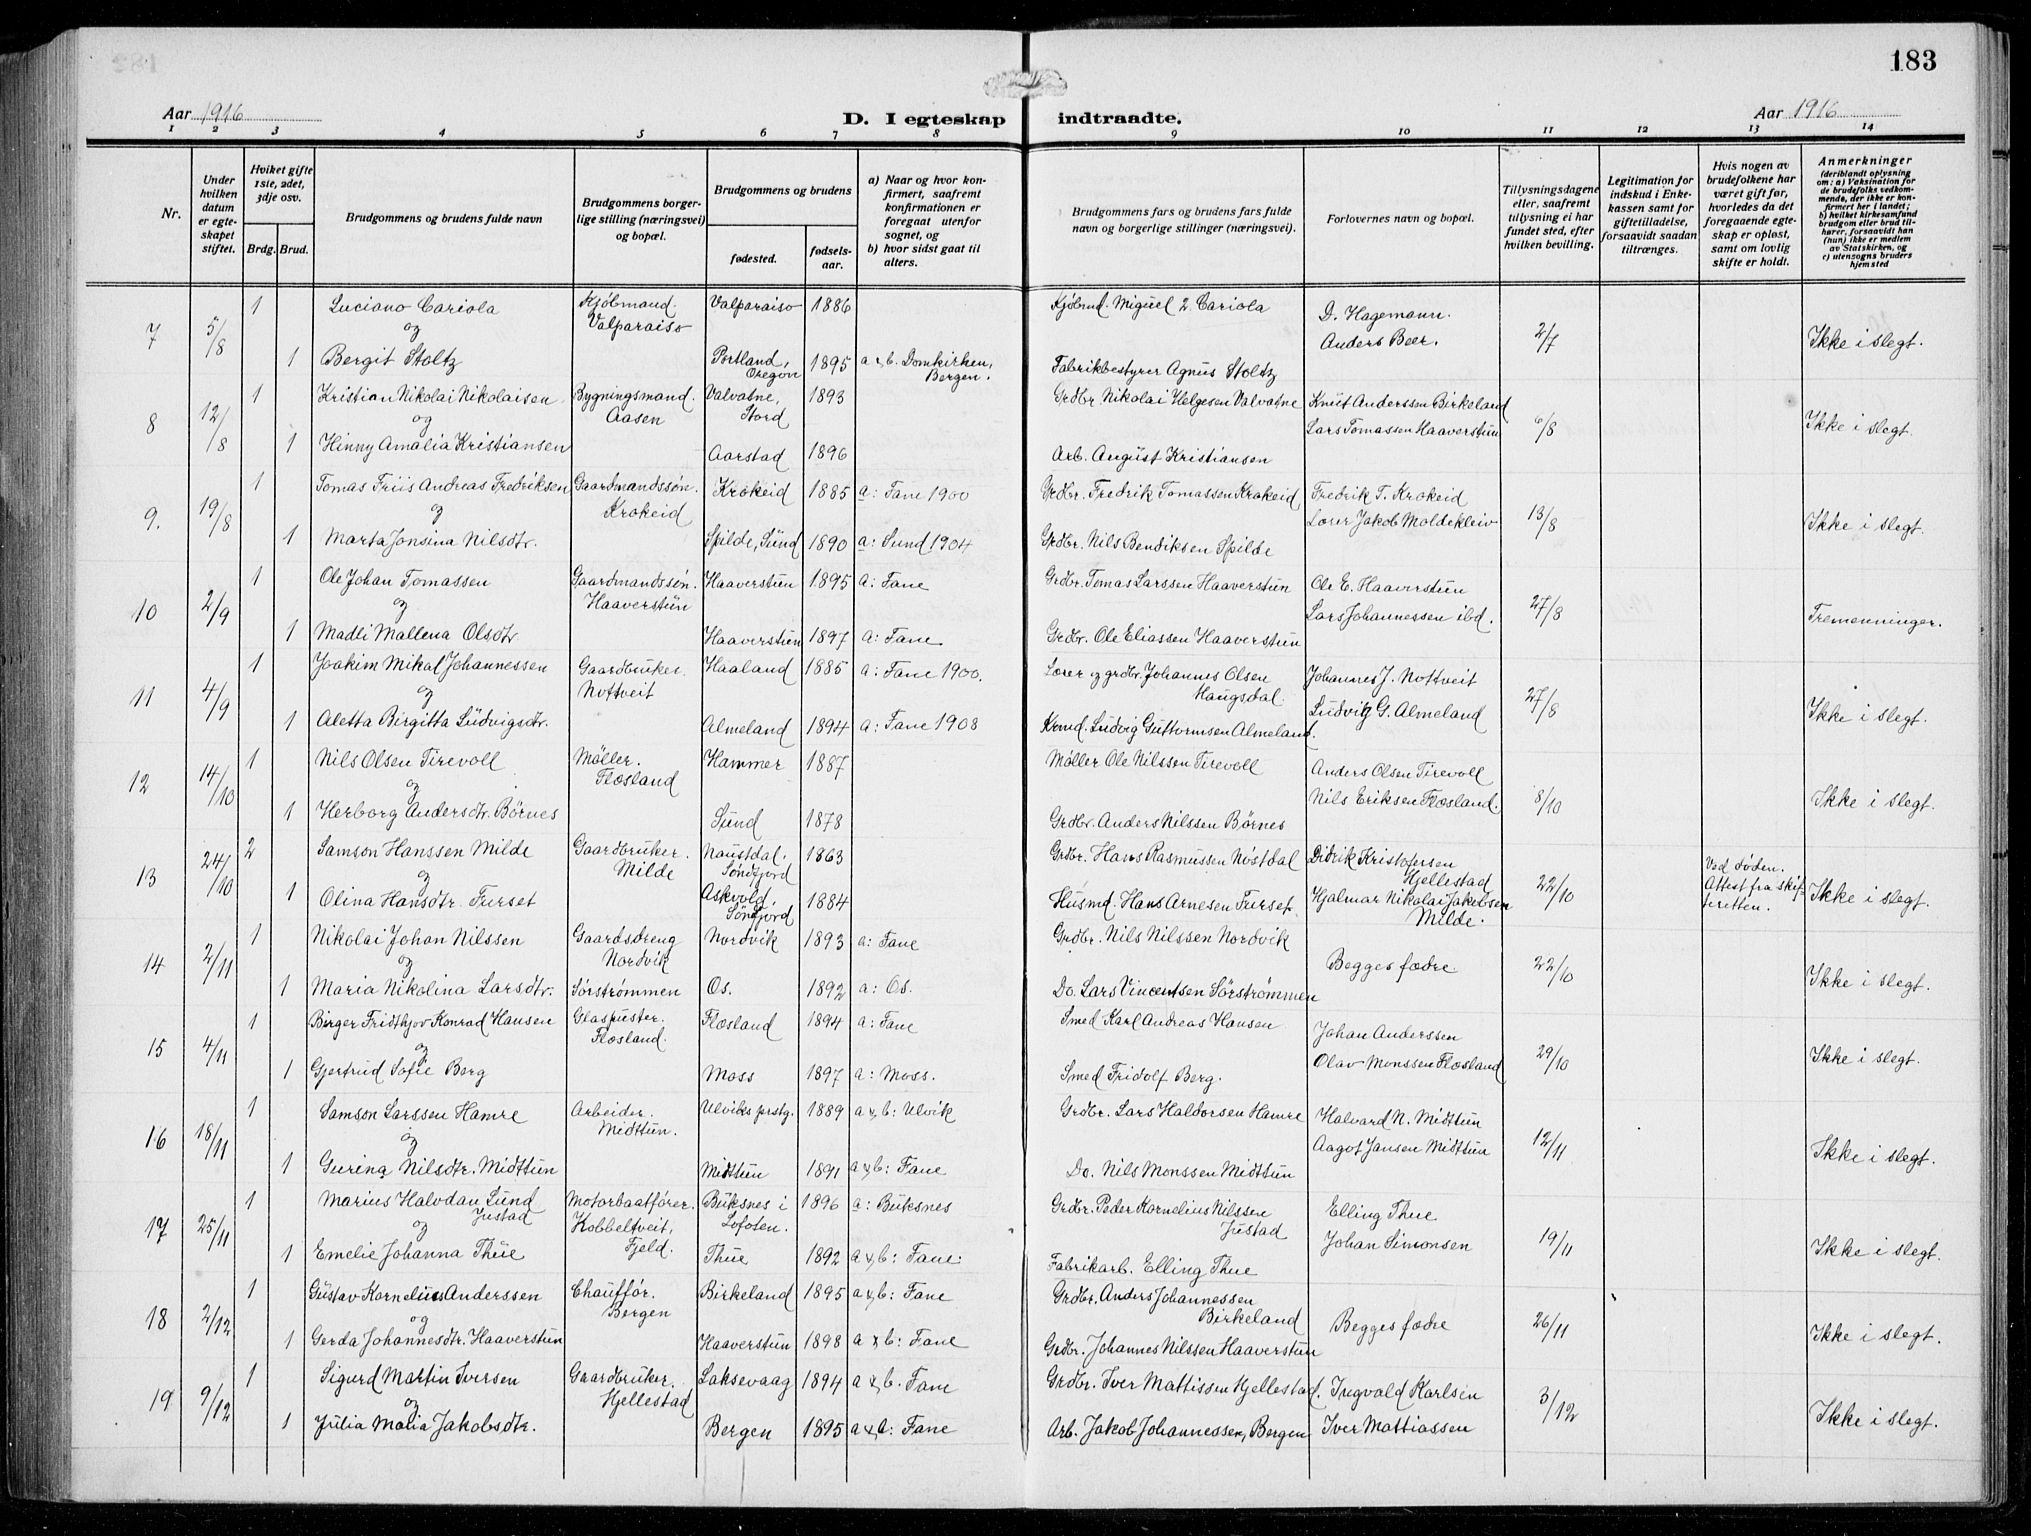 183
Aar 1916
D. I egteskap indtraadte.
Aar 1916
1 2 3 4 5 6 7 8 9 10 11 12 13 14
Nr.
Under hvilken datum er egteskapet stiftet.
Hviket gifte 1ste, 2det, 3dje osv.
Brdg. Brud.
Brudgommens og brudens fulde navn
Brudgommens borgerlige stilling (næringsvei) og bopæl.
Brudgommens og brudens
fødested.
fødselsaar.
a) Naar og hvor konfirmert, saafremt konfirmationen er foregaat utenfor sognet, og
b) hvor sidst gaat til alters.
Brudgommens fars og brudens fars fulde navn og borgerlige stillinger (næringsvei).
Forlovernes navn og bopæl.
Tillysningsdagene eller, saafremt tillysning ei har fundet sted, efter hvilken bevilling.
Legitimation for indskud i Enkekassen samt for giftetilladelse, forsaavidt saadan tiltrænges.
Hvis nogen av brudefolkene har været gift før, hvorledes da det foregaaende egteskap er opløst, samt om lovlig skifte er holdt.
Anmerkninger (deriblandt oplysning om: a) Vaksination for de brudefolks vedkommende, der ikke er konfirmert her i landet; b) hvilket kirkesamfund brudgom eller brud tilhører, forsaavidt han (hun) ikke er medlem av Statskirken, og c) utensogns bruders hjemsted
7 5/8 1 Luciano Cariola Kjøbmand. Valparaiso Valparaiso 1886 Kjøbmd. Miguel 2 Cariola D. Hagemann. 2/7 Ikke i slegt.
og
1 Bergit Stoltz Portland, Oregon 1895 a & b. Domkirken, Bergen. Fabrikbestyrer Agnus Stoltz Anders Beer.
8 12/8 1 Kristian Nikolai Nikolaisen Bygningsmand. Aasen Valvatne, Stord 1893 Grdbr. Nikolai Helgesen Valvatne Knut Anderssen Birkeland 6/8 Ikke i slegt.
og
1 Hinny Amalia Kristiansen Aarstad 1896 Arb. August Kristiansen Lars Tomassen Haaverstun
9. 19/8 1 Tomas Friis Andreas Fredriksen Gaardmandssøn. Krokeid Krokeid 1885 a: Fane 1900 Grdbr. Fredrik Tomassen Krokeid Fredrik T. Krokeid 13/8 Ikke i slegt.
og
1 Marta Jonsina Nilsdtr. Spilde, Sund 1890 a: Sund 1904 Grdbr. Nils Bendiksen Spilde Lærer Jakob Moldekleiv
10 2/9 1 Ole Johan Tomassen Gaardmandssøn. Haaverstun Haaverstun 1895 a: Fane Grdbr. Tomas Larssen Haaverstun Ole E. Haaverstun 27/8 Tremenninger.
og
1 Madli Mallena Olsdtr. Haaverstun 1897 a: Fane Grdbr. Ole Eliassen Haaverstun Lars Johannessen ibd.
11 4/9 1 Joakim Mikal Johannessen Gaardbruker. Nottveit Haaland 1885 a: Fane 1900. Lærer og grdbr. Johannes Olsen Haugsdal Johannes J. Nottveit 27/8 Ikke i slegt.
og
1 Aletta Birgitta Ludvigsdtr. Almeland 1894 a: Fane 1908 Krmd. Ludvig Guttormsen Almeland. Ludvig G. Almeland
12 14/10 1 Nils Olsen Tirevoll Møller. Flæsland Hammer 1887 Møller Ole Nilssen Tirevoll Anders Olsen Tirevoll 8/10 Ikke i slegt.
og
1 Herborg Andersdtr. Børnes Sund 1878 Grdbr. Anders Nilssen Børnes Nils Eriksen Flæsland.
13 24/10 2 Samson Hanssen Milde Gaardbruker. Milde Naustdal, Søndfjord 1863 Grdbr. Hans Rasmussen Nøstdal Didrik Kristofersen Hjellestad 22/10 Ved døden. Attest fra skifteretten. Ikke i slegt.
og
1 Olina Hansdtr. Furset Askvold, Søndfjord 1884 Husmd. Hans Arnesen Furset. Hjalmar Nikolai Jakobsen Milde.
14 2/11 1 Nikolai Johan Nilssen Gaardsdreng Nordvik Nordvik 1893 a: Fane Grdbr. Nils Nilssen Nordvik Begges fædre. 22/10 Ikke i slegt.
og
1 Maria Nikolina Larsdtr. Sørstrømmen Os. 1892 a: Os. Do. Lars Vincentsen Sørstrømmen
15 4/11 1 Birger Fridthjov Konrad Hansen Glaspuster. Flæsland. Flæsland 1894 a: Fane Smed Karl Andreas Hansen Johan Anderssen 29/10 Ikke i slegt.
og
1 Gjertrud Sofie Berg Moss 1897 a: Moss. Smed Fridolf Berg. Olav Monssen Flæsland
16 18/11 1 Samson Larssen Hamre Arbeider. Midttun. Ulviks prstg. 1889 a & b: Ulvik Grdbr. Lars Haldorsen Hamre Halvard N. Midttun 12/11 Ikke i slegt.
og
1 Gurina Nilsdtr. Midttun Midttun 1891 a & b: Fane Do. Nils Monssen Midttun Aagot Jansen Midttun
17 25/11 1 Marius Halvdan Sund Justad Motorbaatfører. Kobbeltveit, Fjeld. Buksnes i Lofoten. 1896 a: Buksnes Grdbr. Peder Kornelius Nilssen Justad Elling Thue 19/11 Ikke i slegt.
og
1 Emelie Johanna Thue Thue 1892 a & b: Fane. Fabrikarb. Elling Thue Johan Simonsen
18 2/12 1 Gustav Kornelius Anderssen Chauffør. Bergen Birkeland 1895 a & b: Fane Grdbr. Anders Johannessen Birkeland Begges fædre 26/11 Ikke i slegt.
og
1 Gerda Johannesdtr. Haaverstun Haaverstun 1898 a & b: Fane Grdbr. Johannes Nilssen Haaverstun
19 9/12 1 Sigurd Martin Iversen Gaardbruker. Hjellestad Laksevaag 1894 a & b. Fane Grdbr. Iver Mattissen Hjellestad. Ingvald Karlsen 3/12 Ikke i slegt.
og
1 Julia Maria Jakobsdtr. Bergen 1895 a & b: Fane Arb. Jakob Johannessen, Bergen Iver Mattiassen